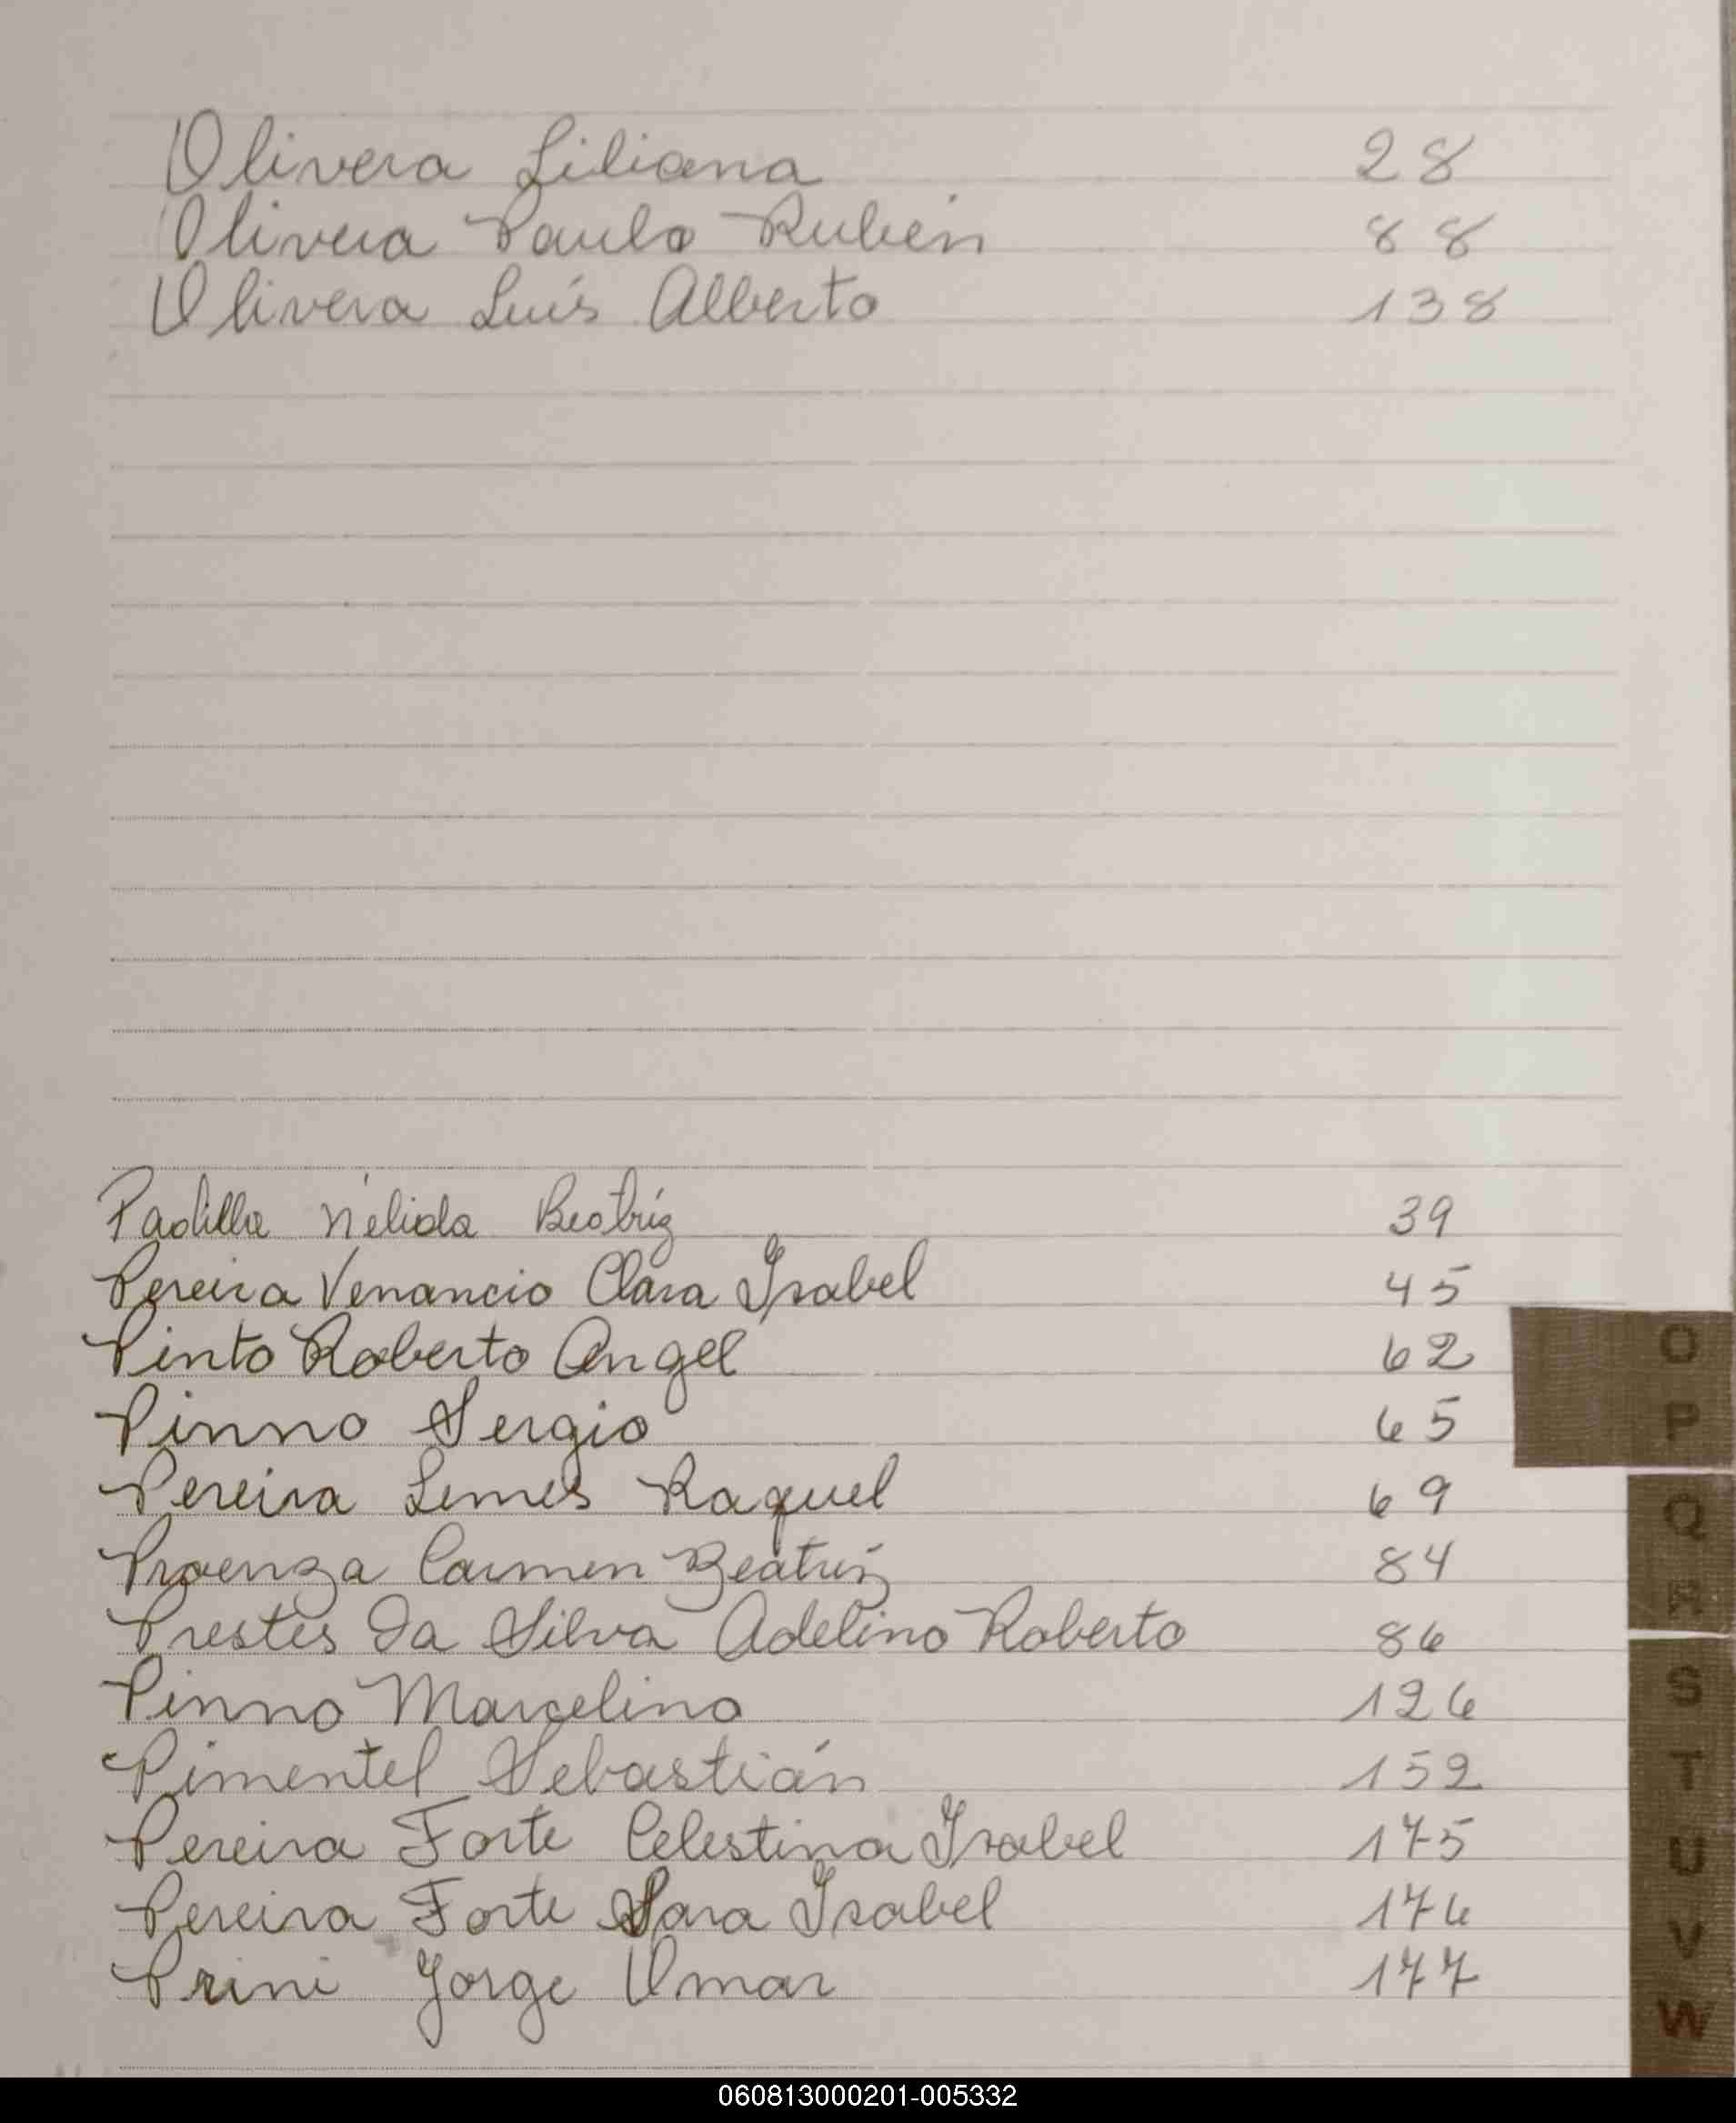 Olivera Liliana 28
Olivera Paulo Rubén 88
Olivera Luís Alberto 138
Padilla Nélida Beatríz 39
Pereira Venancio Clara Isabel 45
Pinto Roberto Angel 62
Pinno Sergio 65
Pereira Lemes Raquel 69
Proenza Carmen Beatriz 84
Prestes Da Silva Adelino Roberto 86
Pinno Marcelino 126
Pimentel Sebastián 152
Pereira Forte Celestina Isabel 175
Pereira Forte Sara Isabel 176
Prini Jorge Omar 177
O
P
Q
R
S
T
U
V
W
060813000201-005332